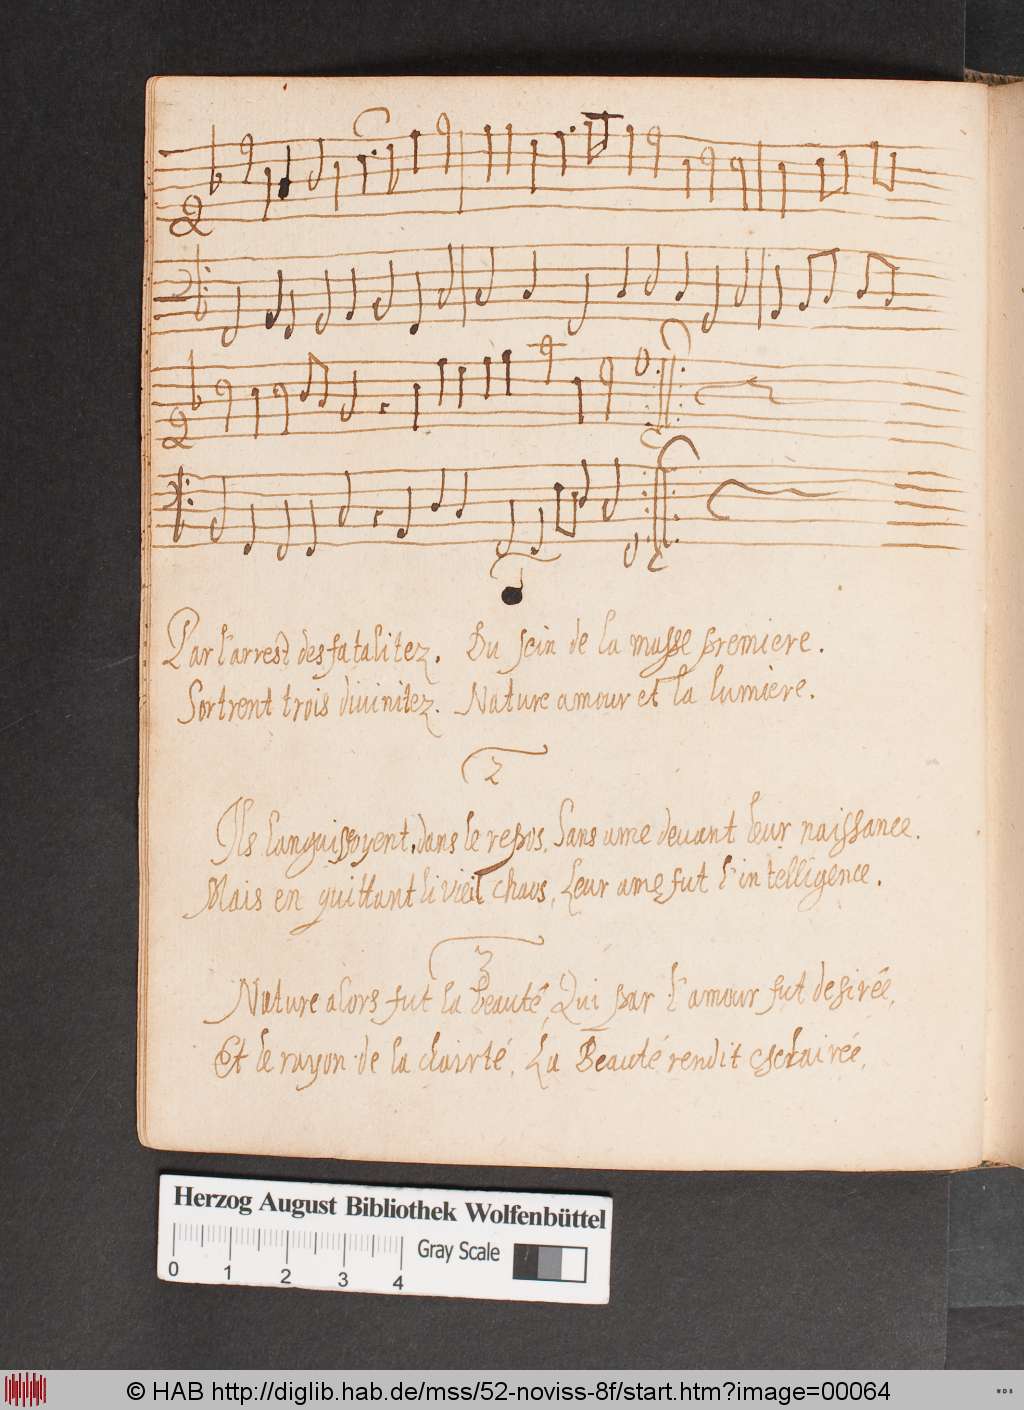 Par l'arrest des fatalitez. Du sein de la masse premiere.
Sortrent trois divinitez. Nature amour et la lumiere.
2
Ils languissoyent, dans le repos, Sans ame devant leur naissance.
Mais en quittant li vieil chaos, Leur ame fut l'intelligence.
3
Nature alors fut la beauté, Qui par l'amour fut desirée,
Et le rayon de la clairté, La Beauté rendit esclairée,
Herzog August Bibliothek Wolfenbüttel
Gray Scale
0 1 2 3 4
© HAB http://diglib.hab.de/mss/52-noviss-8f/start.htm?image=00064